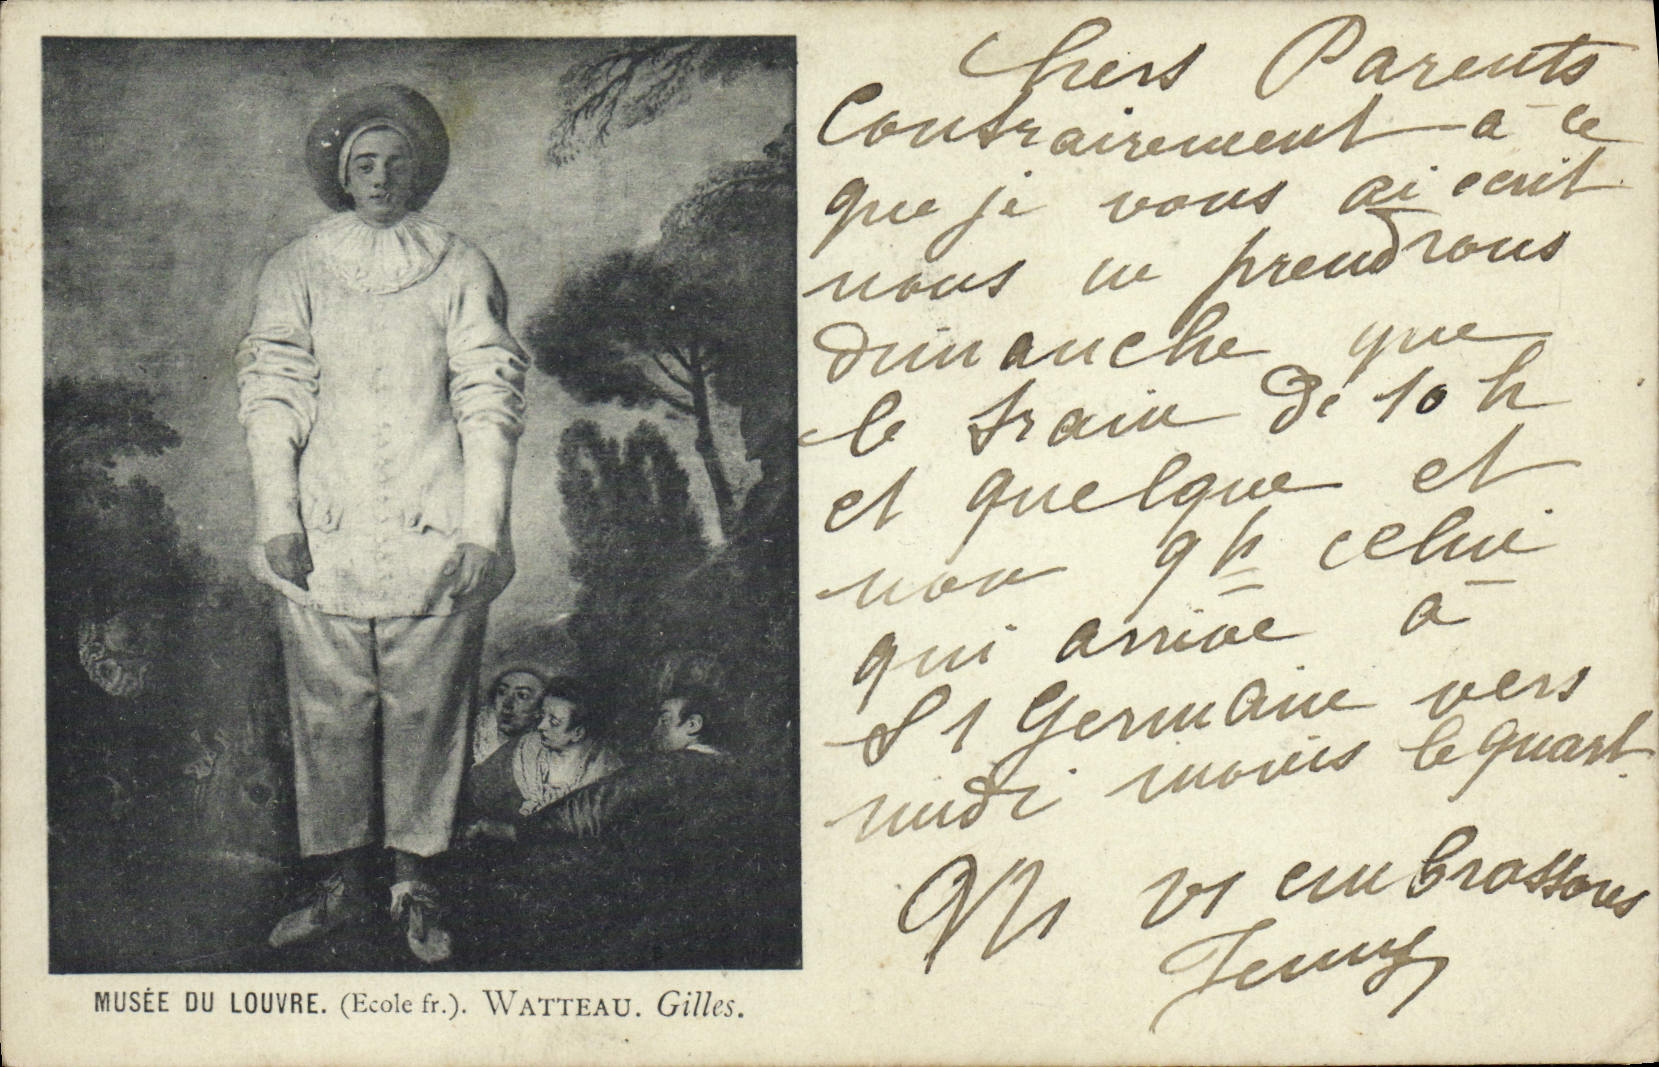 Chers Parents
Contrairement à ce
que je vous ai ecrit
nous ne prendrons
dimanche que
le train de 10 h
et quelque et
non 9h celui
qui arrive à
St Germain vers
midi moins le quart
Ns vs embrassons
Jenny
MUSÉE DU LOUVRE. (Ecole fr.). WATTEAU. Gilles.